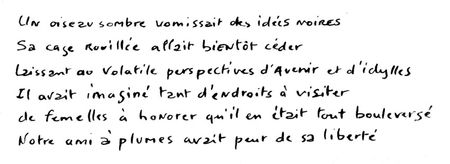 Un oiseau sombre vomissait des idées noires
Sa cage rouillée allait bientôt céder
Laissant au volatile perspectives d'Avenir et d'idylles
Il avait imaginé tant d'endroits à visiter
de femelles à honorer qu'il en était tout bouleversé
Notre ami à plumes avait peur de sa liberté